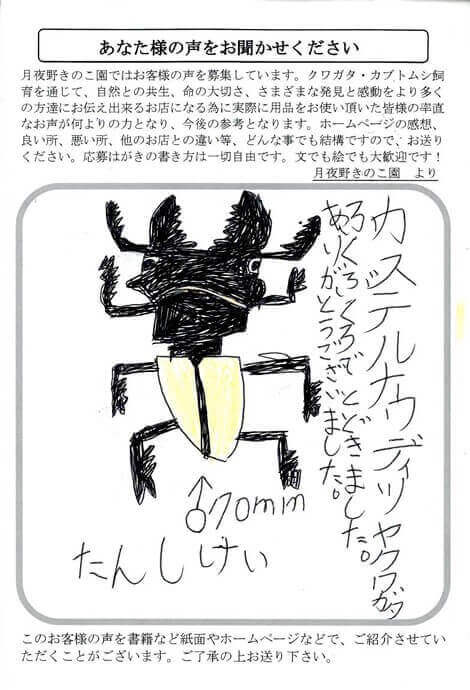 あなた様の声をお聞かせください
月夜野きのこ園ではお客様の声を募集しています。クワガタ・カブトムシ飼
育を通じて、自然との共生、命の大切さ、さまざまな発見と感動をより多く
の方達にお伝え出来るお店になる為に実際に用品をお使い頂いた皆様の率直
なお声が何よりの力となり、今後の参考となります。ホームページの感想、
良い所、悪い所、他のお店との違い等、どんな事でも結構ですので、お送り
ください。応募はがきの書き方は一切自由です。文でも絵でも大歓迎です！
月夜野きのこ園　より
カステルナウディツヤクワガタ
ろくろくろでとどきました。
ありがとうございました。
♂70mm
たんしけい
このお客様の声を書籍など紙面やホームページなどで、ご紹介させてい
ただくことがございます。ご了承の上お送り下さい。